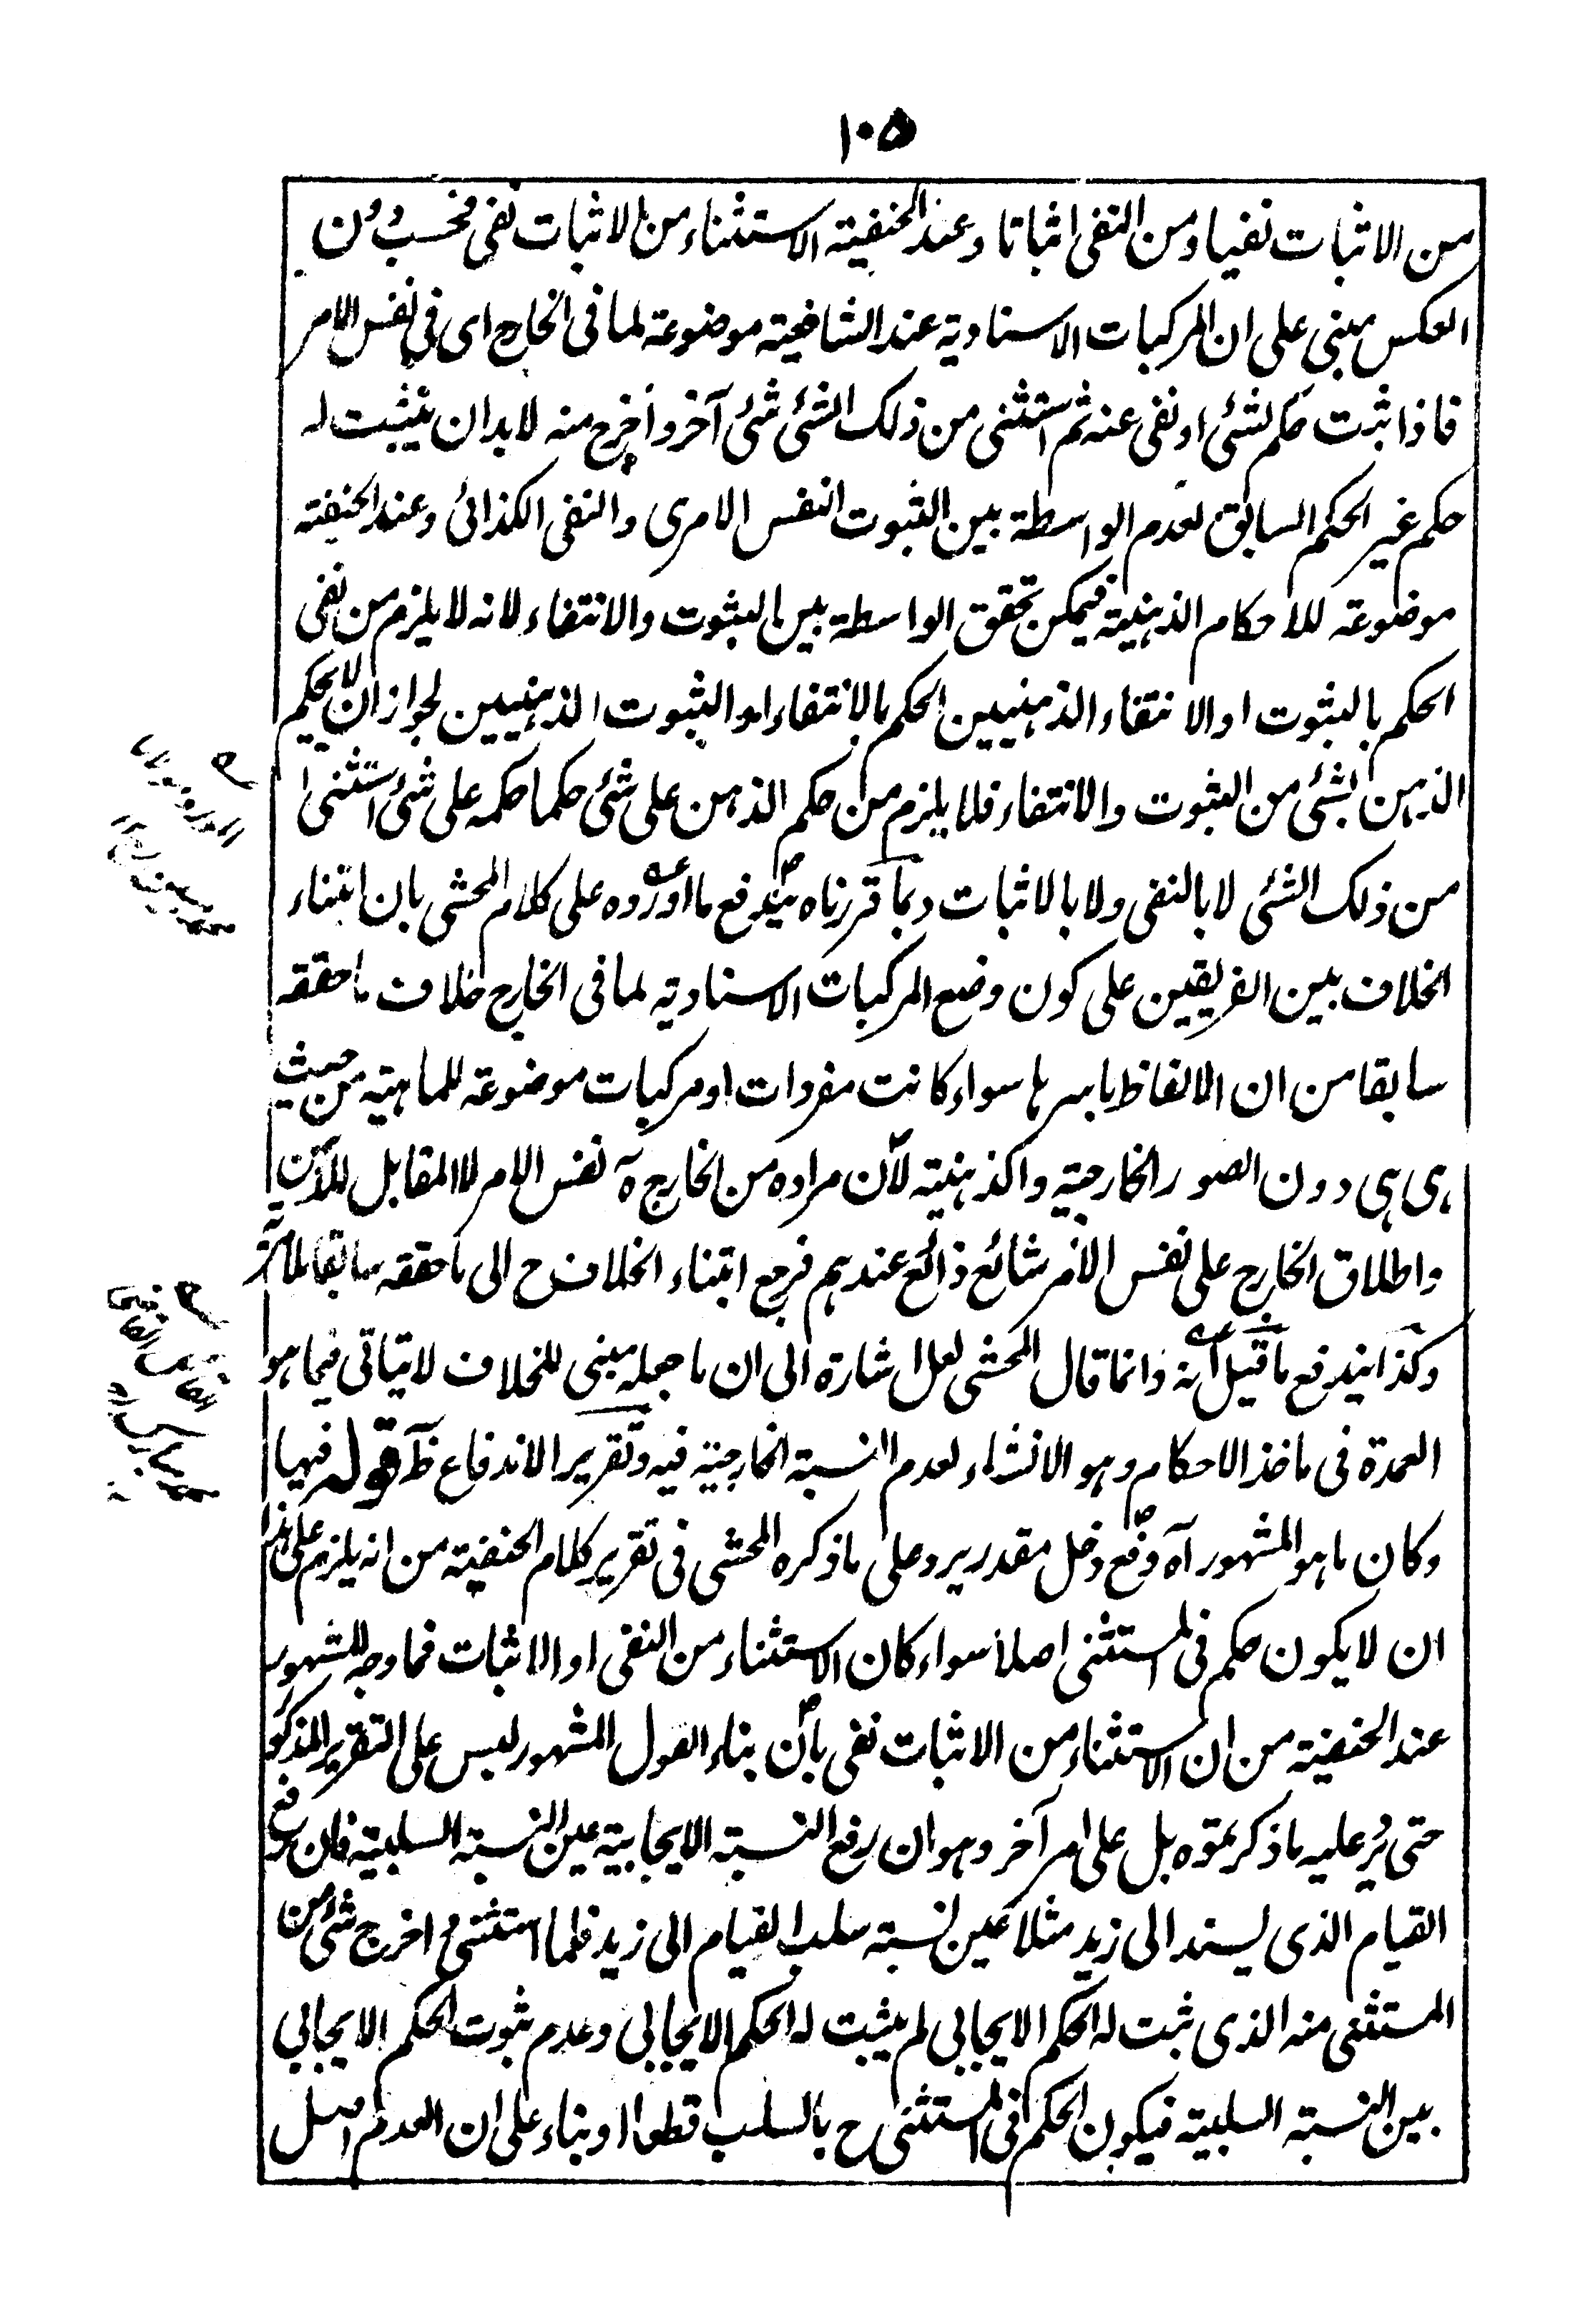 ١٠٥
من الاثبات نفيا ومن النفى اثباتا وعند الحنفية الاستثناء من الاثبات نفى فحسب دون
العكس مبنى على ان المركبات الاسنادية عند الشافعية موضوعة لما فى الخارج اى فى نفس الامر
فاذا ثبت حكم لشئ او نفى عنه ثم استثنى من ذلك الشئ شئ آخر واخرج منه لابد ان يثبت له
حكم غير الحكم السابق لعدم الواسطة بين الثبوت النفس الامرى والنفى الكذائى وعند الحنفية
موضوعة للاحكام الذهنية فيمكن تحقق الواسطة بين الثبوت والانتفاء لانه لا يلزم من نفى
الحكم بالثبوت او الانتفاء الذهنيين الحكم بالانتفاء او الثبوت الذهنيين لجواز ان لا يحكم
الذهن بشئ من الثبوت والانتفاء فلا يلزم من حكم الذهن على شئ حكما حكمه على شئ استثنى
من ذلك الشئ لا بالنفى ولا بالاثبات وبما قررناه يندفع ما اورده على كلام المحشى بان ابتناء
الخلاف بين الفريقين على كون وضع المركبات الاسنادية لما فى الخارج خلاف ما حققه
سابقا من ان الالفاظ باسرها سواء كانت مفردات او مركبات موضوعة للماهية من حيث
هى هى دون الصور الخارجية والذهنية لان مراده من الخارج ه نفس الامر لا المقابل للذهن
واطلاق الخارج على نفس الامر شائع ذائع عندهم فرجع ابتناء الخلاف ح الى ما حققه سابقا
وكذا يندفع ما قيل انه وانما قال المحشى لعل اشارة الى ان ما جعله مبنى للخلاف لا يتاتى فيما هو
العمدة فى ماخذ الاحكام وهو الانشاء لعدم النسبة الخارجية فيه وتقرير الاندفاع ظ قوله فيها
وكان ما هو المشهور آه دفع دخل مقدر يرد على ما ذكره المحشى فى تقرير كلام الحنفية من انه يلزم على هذا
ان لا يكون حكم فى المستثنى اصلا سواء كان الاستثناء من النفى او الاثبات فما وجه المشهور
عند الحنفية من ان الاستثناء من الاثبات نفى بان بناء القول المشهور ليس على التقرير المذكور
حتى يرد عليه ما ذكرتموه بل على امر آخر وهو ان رفع النسبة الايجابية عين النسبة السلبية فان رفع
القيام الذى يسند الى زيد مثلا عين نسبة سلب القيام الى زيد فلما استثنى واخرج شئ من
المستثنى منه الذى ثبت له الحكم الايجابى لم يثبت له الحكم الايجابى وعدم ثبوت الحكم الايجابى
بين النسبة السلبية فيكون الحكم فى المستثنى ح بالسلب قطعا او بناء على ان العدم اصل